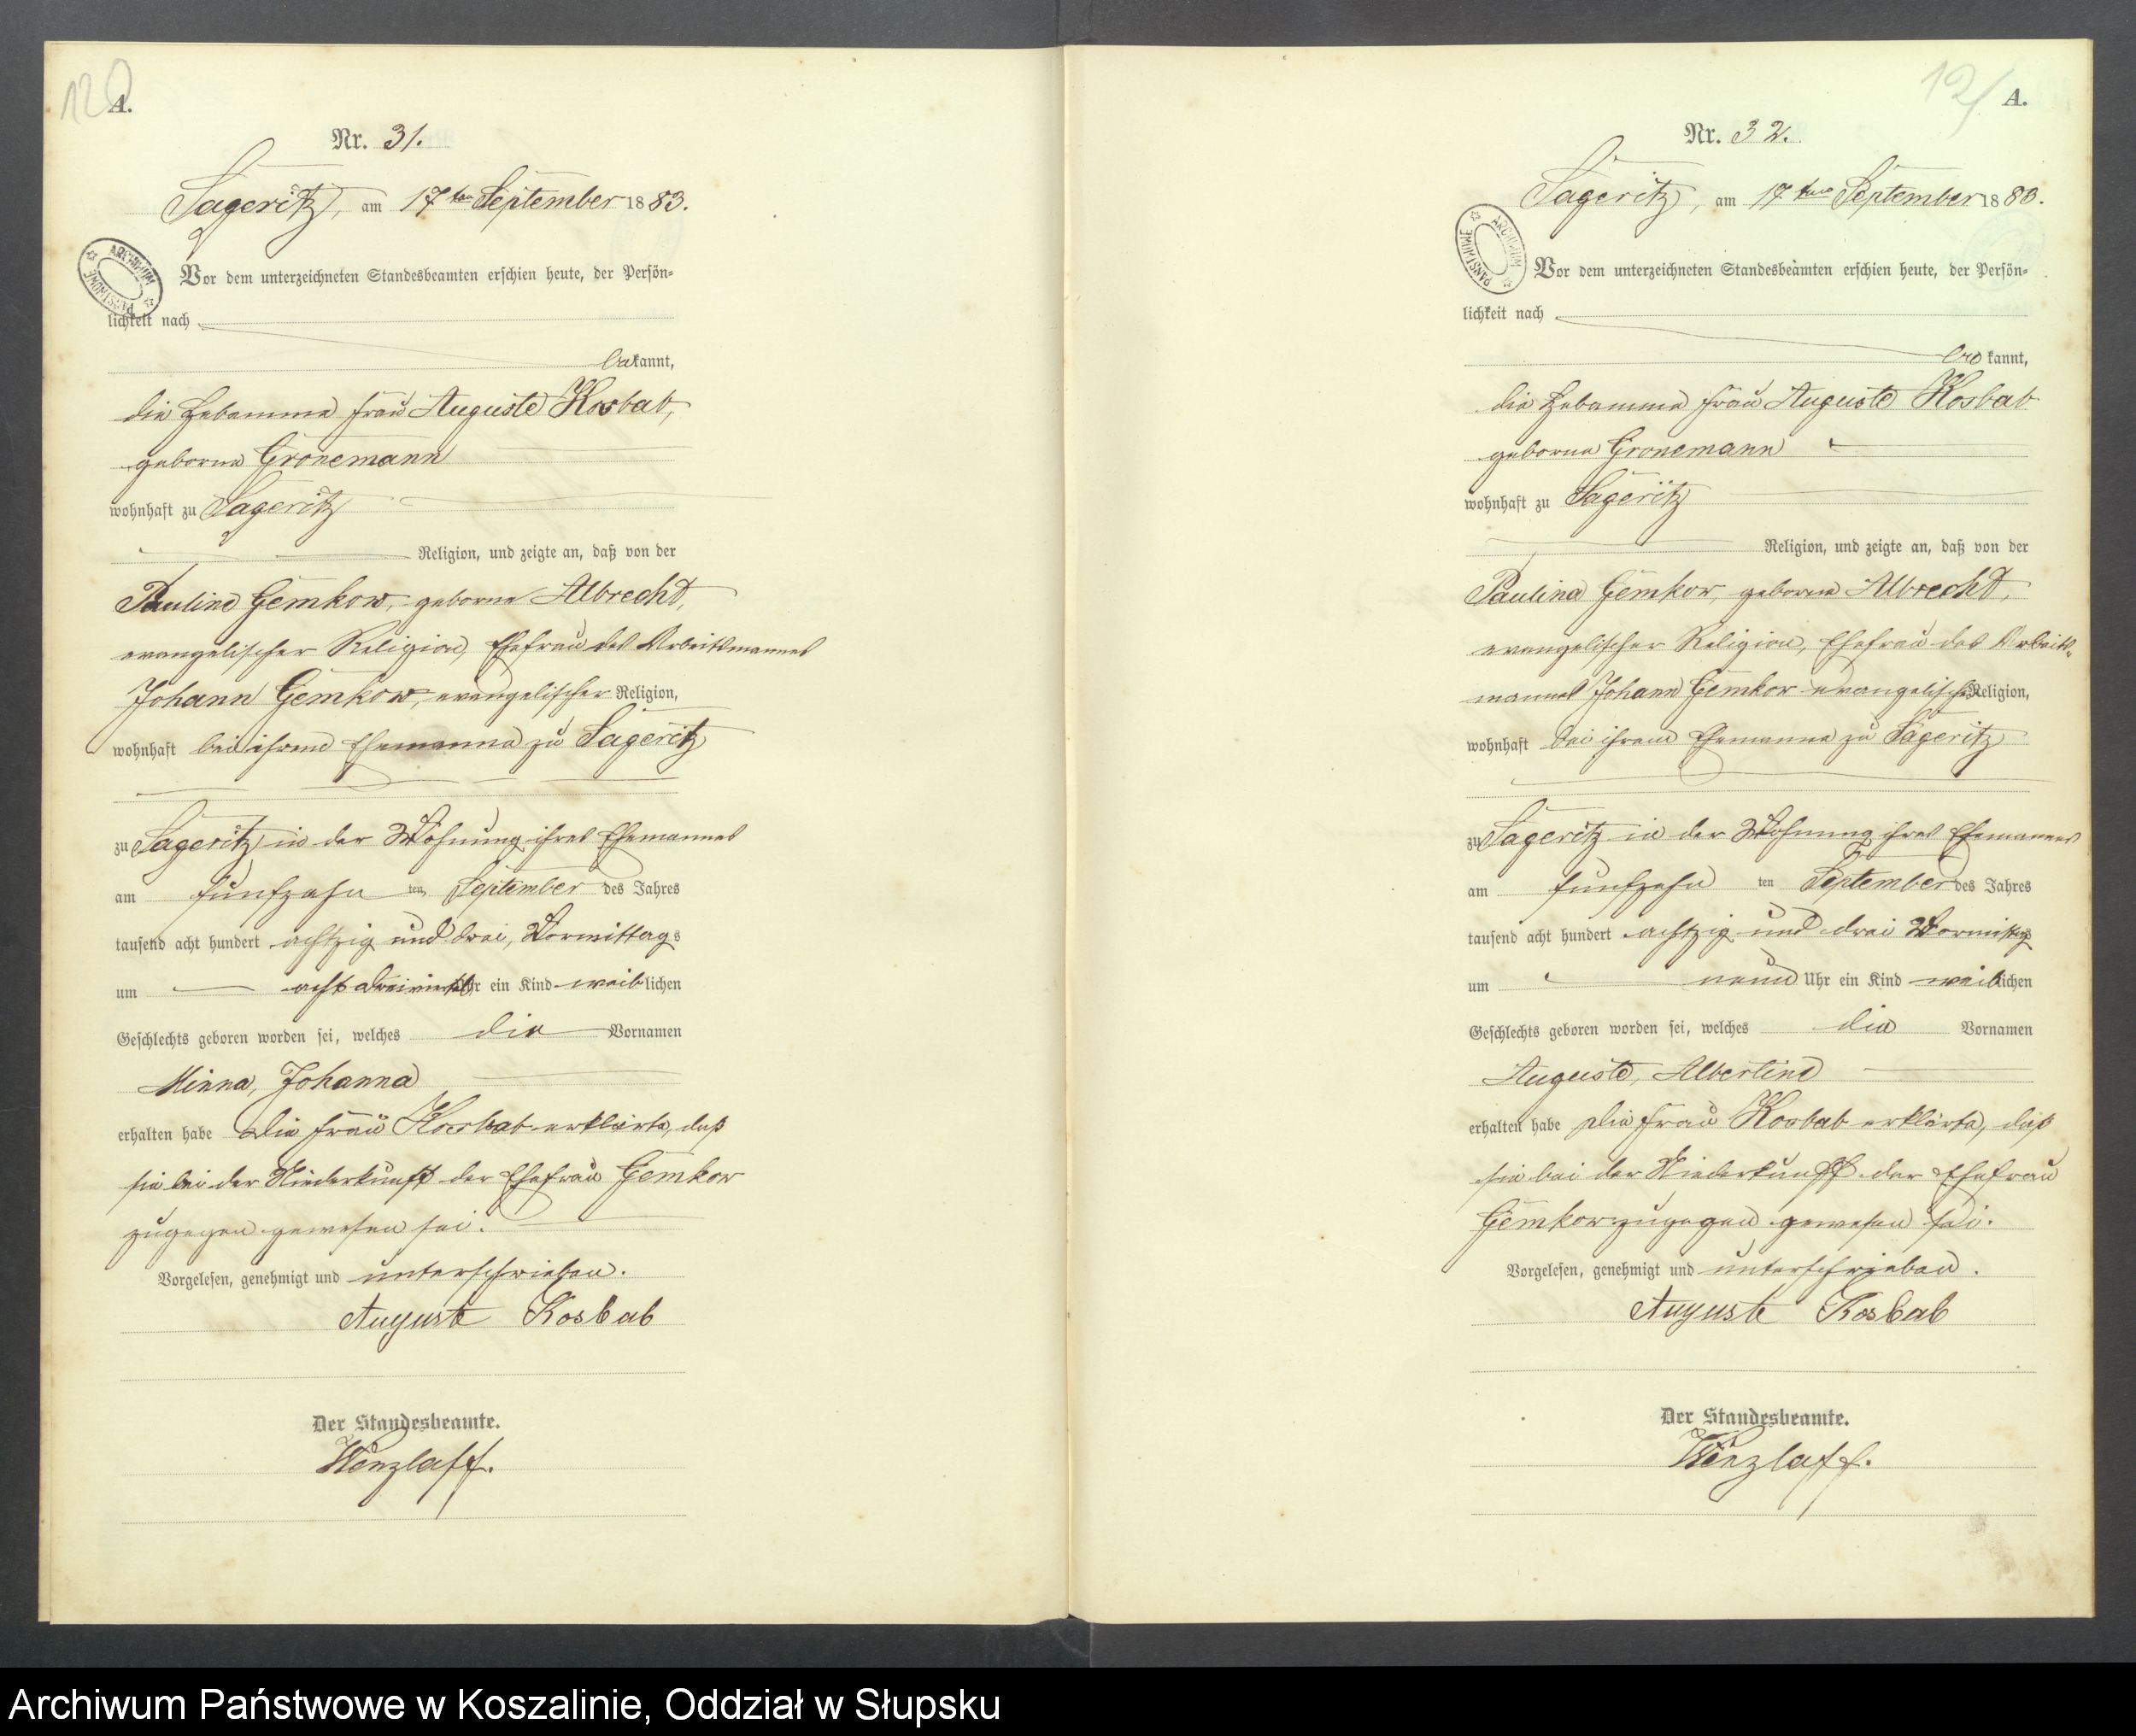 120
A.
Nr. 31.
Sageritz, am 17ten September 1883.
ARCHIWUM PAŃSTWOWE
Vor dem unterzeichneten Standesbeamten erschien heute, der Persön=
lichkeit nach
bekannt,
die Hebamme Frau Auguste Kosbab,
geborne Gronemann
wohnhaft zu Sageritz
Religion, und zeigte an, daß von der
Pauline Gemkow, geborne Albrecht,
evangelischer Religion, Ehefrau des Arbeitsmannes
Johann Gemkow, evangelischer Religion,
wohnhaft bei ihrem Ehemanne zu Sageritz
zu Sageritz in der Wohnung ihres Ehemannes
am fünfzehn ten September des Jahres
tausend acht hundert achtzig und drei, Vormittags
um acht dreiviertel Uhr ein Kind weiblichen
Geschlechts geboren worden sei, welches die Vornamen
Minna, Johanna
erhalten habe Die Frau Kosbab erklärte, daß
sie bei der Niederkunft der Ehefrau Gemkow
zugegen gewesen sei.
Vorgelesen, genehmigt und unterschrieben.
Auguste Kosbab
Der Standesbeamte.
Wenzlaff.
121
A.
Nr. 32.
Sageritz, am 17ten September 1883.
ARCHIWUM PAŃSTWOWE
Vor dem unterzeichneten Standesbeamten erschien heute, der Persön=
lichkeit nach
bekannt,
die Hebamme Frau Auguste Kosbab
geborne Gronemann
wohnhaft zu Sageritz
Religion, und zeigte an, daß von der
Pauline Gemkow, geborne Albrecht,
evangelischer Religion, Ehefrau des Arbeits-
mannes Johann Gemkow evangelischer Religion,
wohnhaft bei ihrem Ehemanne zu Sageritz
zu Sageritz in der Wohnung ihres Ehemannes
am fünfzehn ten September des Jahres
tausend acht hundert achtzig und drei Vormittags
um neun Uhr ein Kind weiblichen
Geschlechts geboren worden sei, welches die Vornamen
Auguste, Albertine
erhalten habe Die Frau Kosbab erklärte, daß
sie bei der Niederkunft der Ehefrau
Gemkow zugegen gewesen sei.
Vorgelesen, genehmigt und unterschrieben.
Auguste Kosbab
Der Standesbeamte.
Wenzlaff.
Archiwum Państwowe w Koszalinie, Oddział w Słupsku